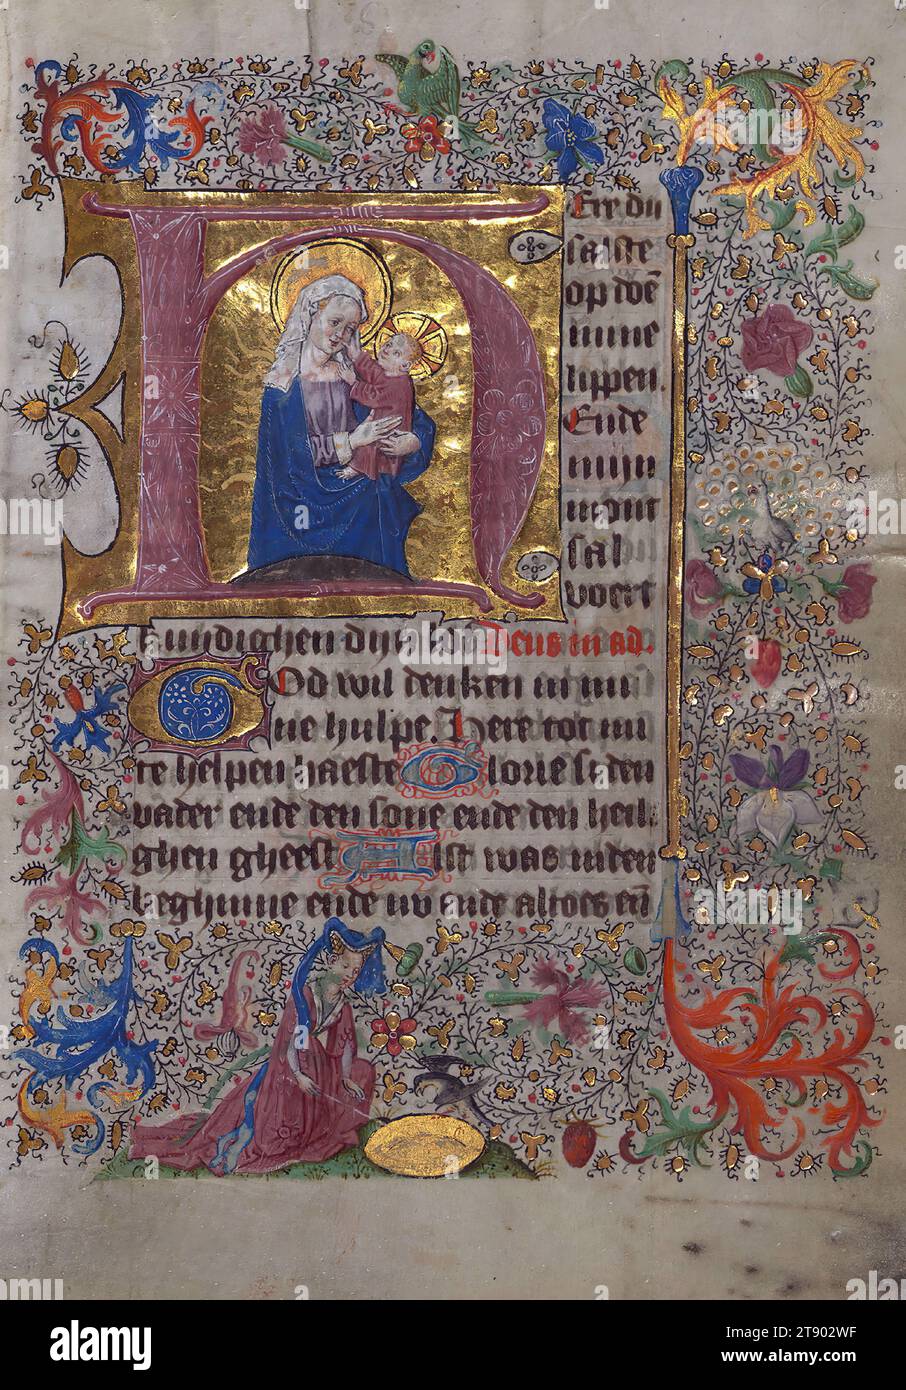 Ere du
salste
op doē
mine
lippen.
Ende
mijn
mont
sal
voert
kundighen dijn lou Deus in ad.
God wil denken in mi
ne hulpe. Here tot mi
te helpen haeste Glorie si den
vader ende den sone ende den heili
ghen gheest Alst was inden
beghinne ende nu ende altoes eñ
alamy
Image ID: 2T902WF
www.alamy.com